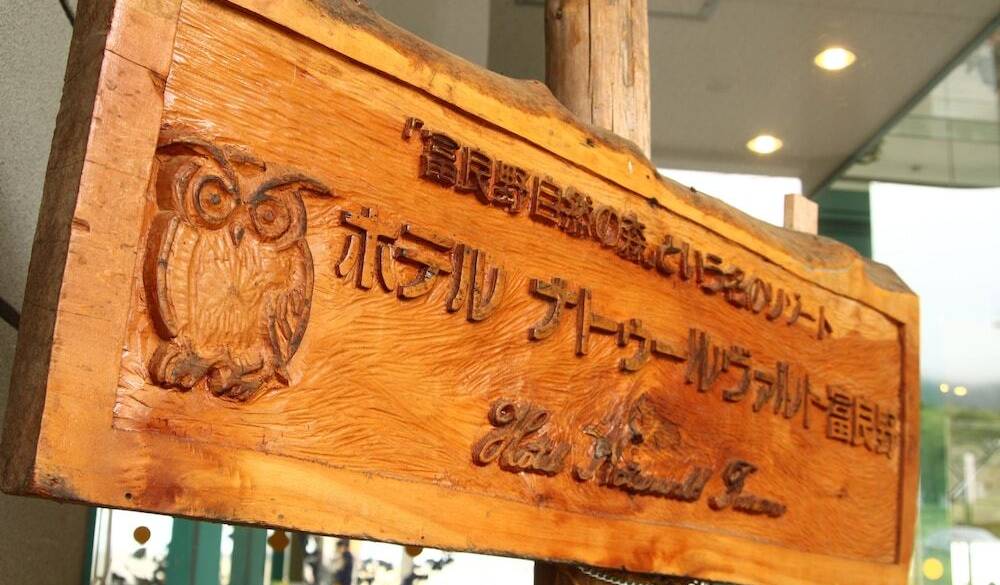 『富良野自然の森』というなのリゾート
ホテル ナトゥールヴァルト富良野
Hotel Naturwald Furano